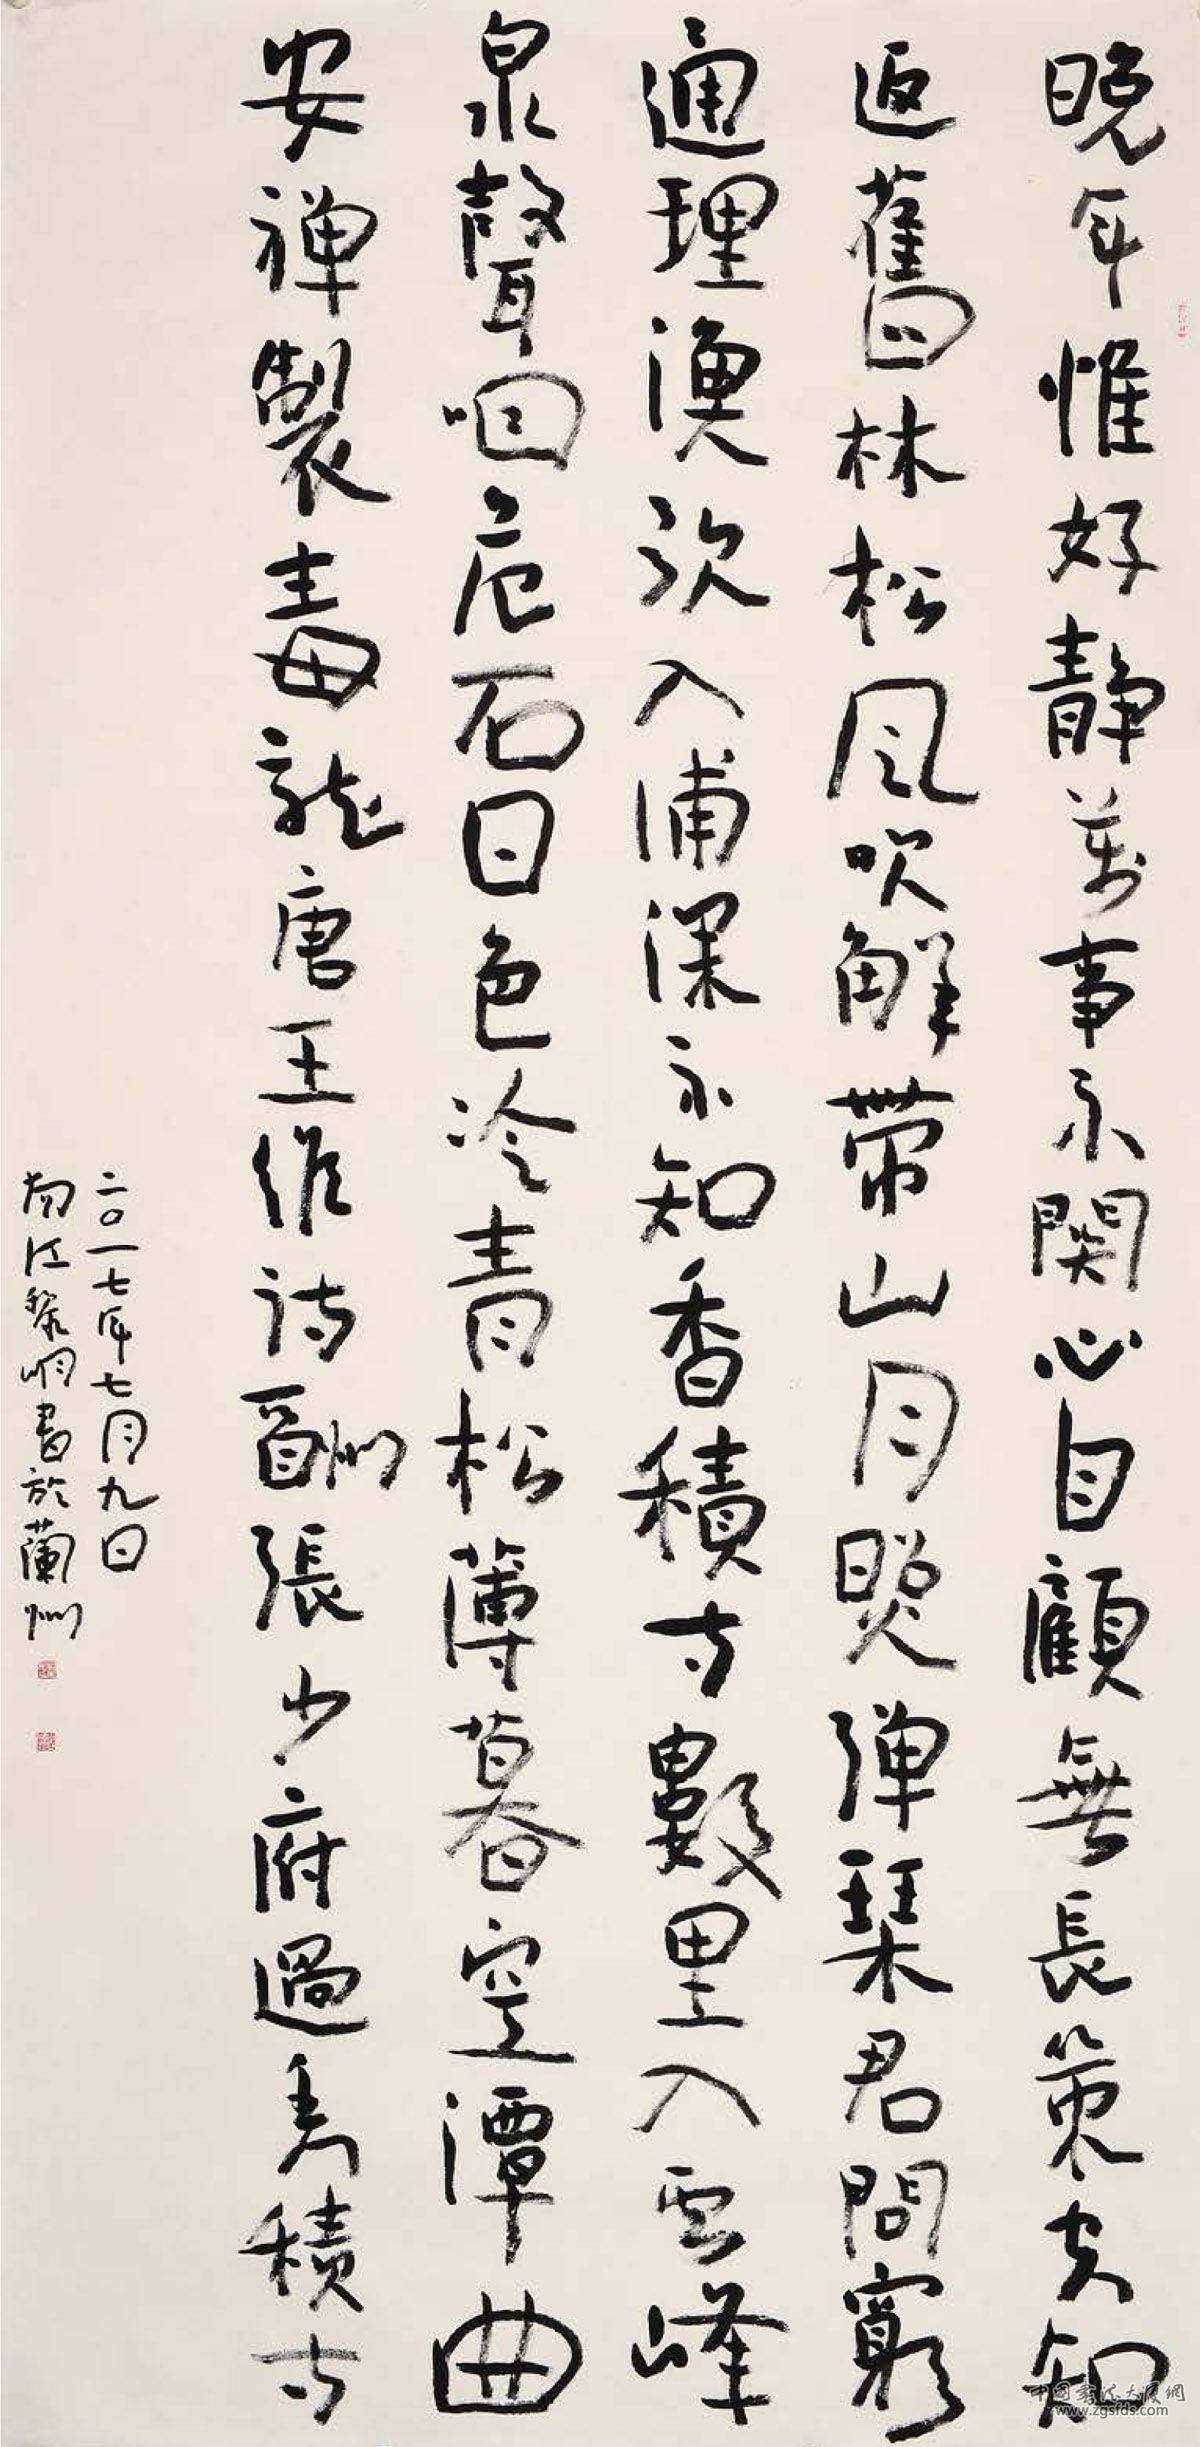 晚年惟好靜萬事不関心自顧無長策空知
返舊林松風吹解帶山月照彈琴君問窮
通理漁歌入浦深不知香積寺數里入雲峰
泉聲咽危石日色冷青松薄暮空潭曲
安禪製毒龍唐王維詩酬張少府過香積寺
二〇一七年七月九日
南江黎明書於蘭州
中國書法大厦網
www.zgsfds.com